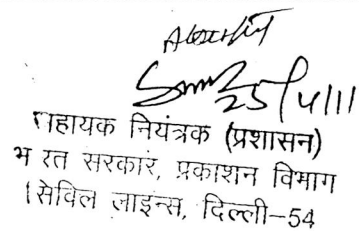 25/4/11
सहायक नियंत्रक (प्रशासन)
भ रत सरकार, प्रकाशन विभाग
सिविल लाइन्स, दिल्ली-54